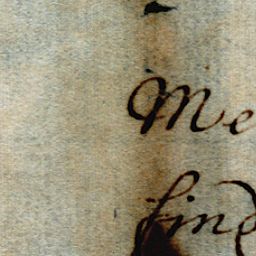 Me
find